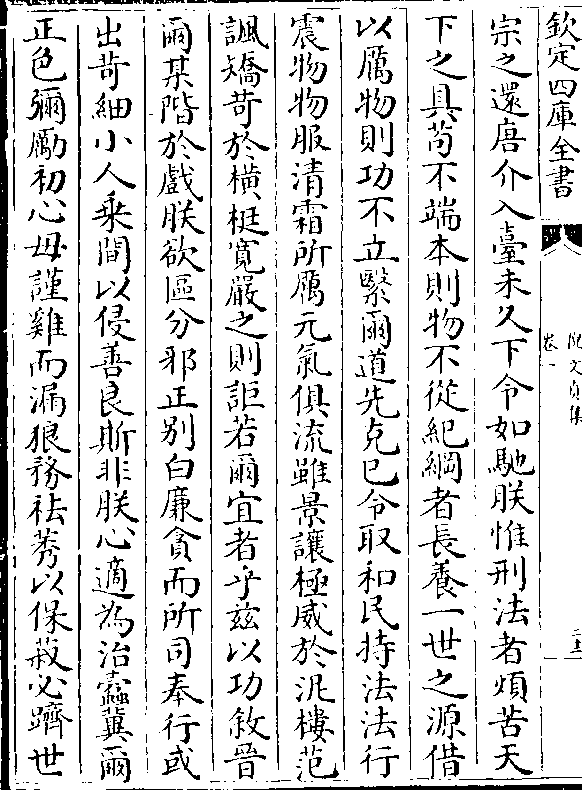 欽定四庫全書
倪文貞集
卷一
宗之還唐介入臺未久下令如馳朕惟刑法者煩苦天
下之具苟不端本則物不從紀綱者長養一世之源借
以厲物則功不立繄爾道先克已令取和民持法法行
震物物服清霜所厲元氣俱流雖景讓極威於泥樓范
諷矯苛於橫梃寬嚴之則詎若爾宜者乎茲以功敘晉
爾某階於戲朕欲區分邪正别白廉貪而所司奉行或
出苛細小人乗間以侵善良斯非朕心適為治蠧冀爾
正色彌勵初心毋謹雞而漏狼務祛莠以保菽必躋世